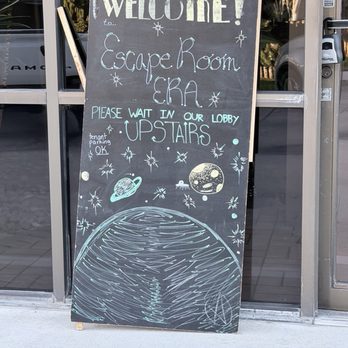 WELCOME!
to...
Escape Room
ERA
PLEASE WAIT IN OUR LOBBY
UPSTAIRS
parking
OK